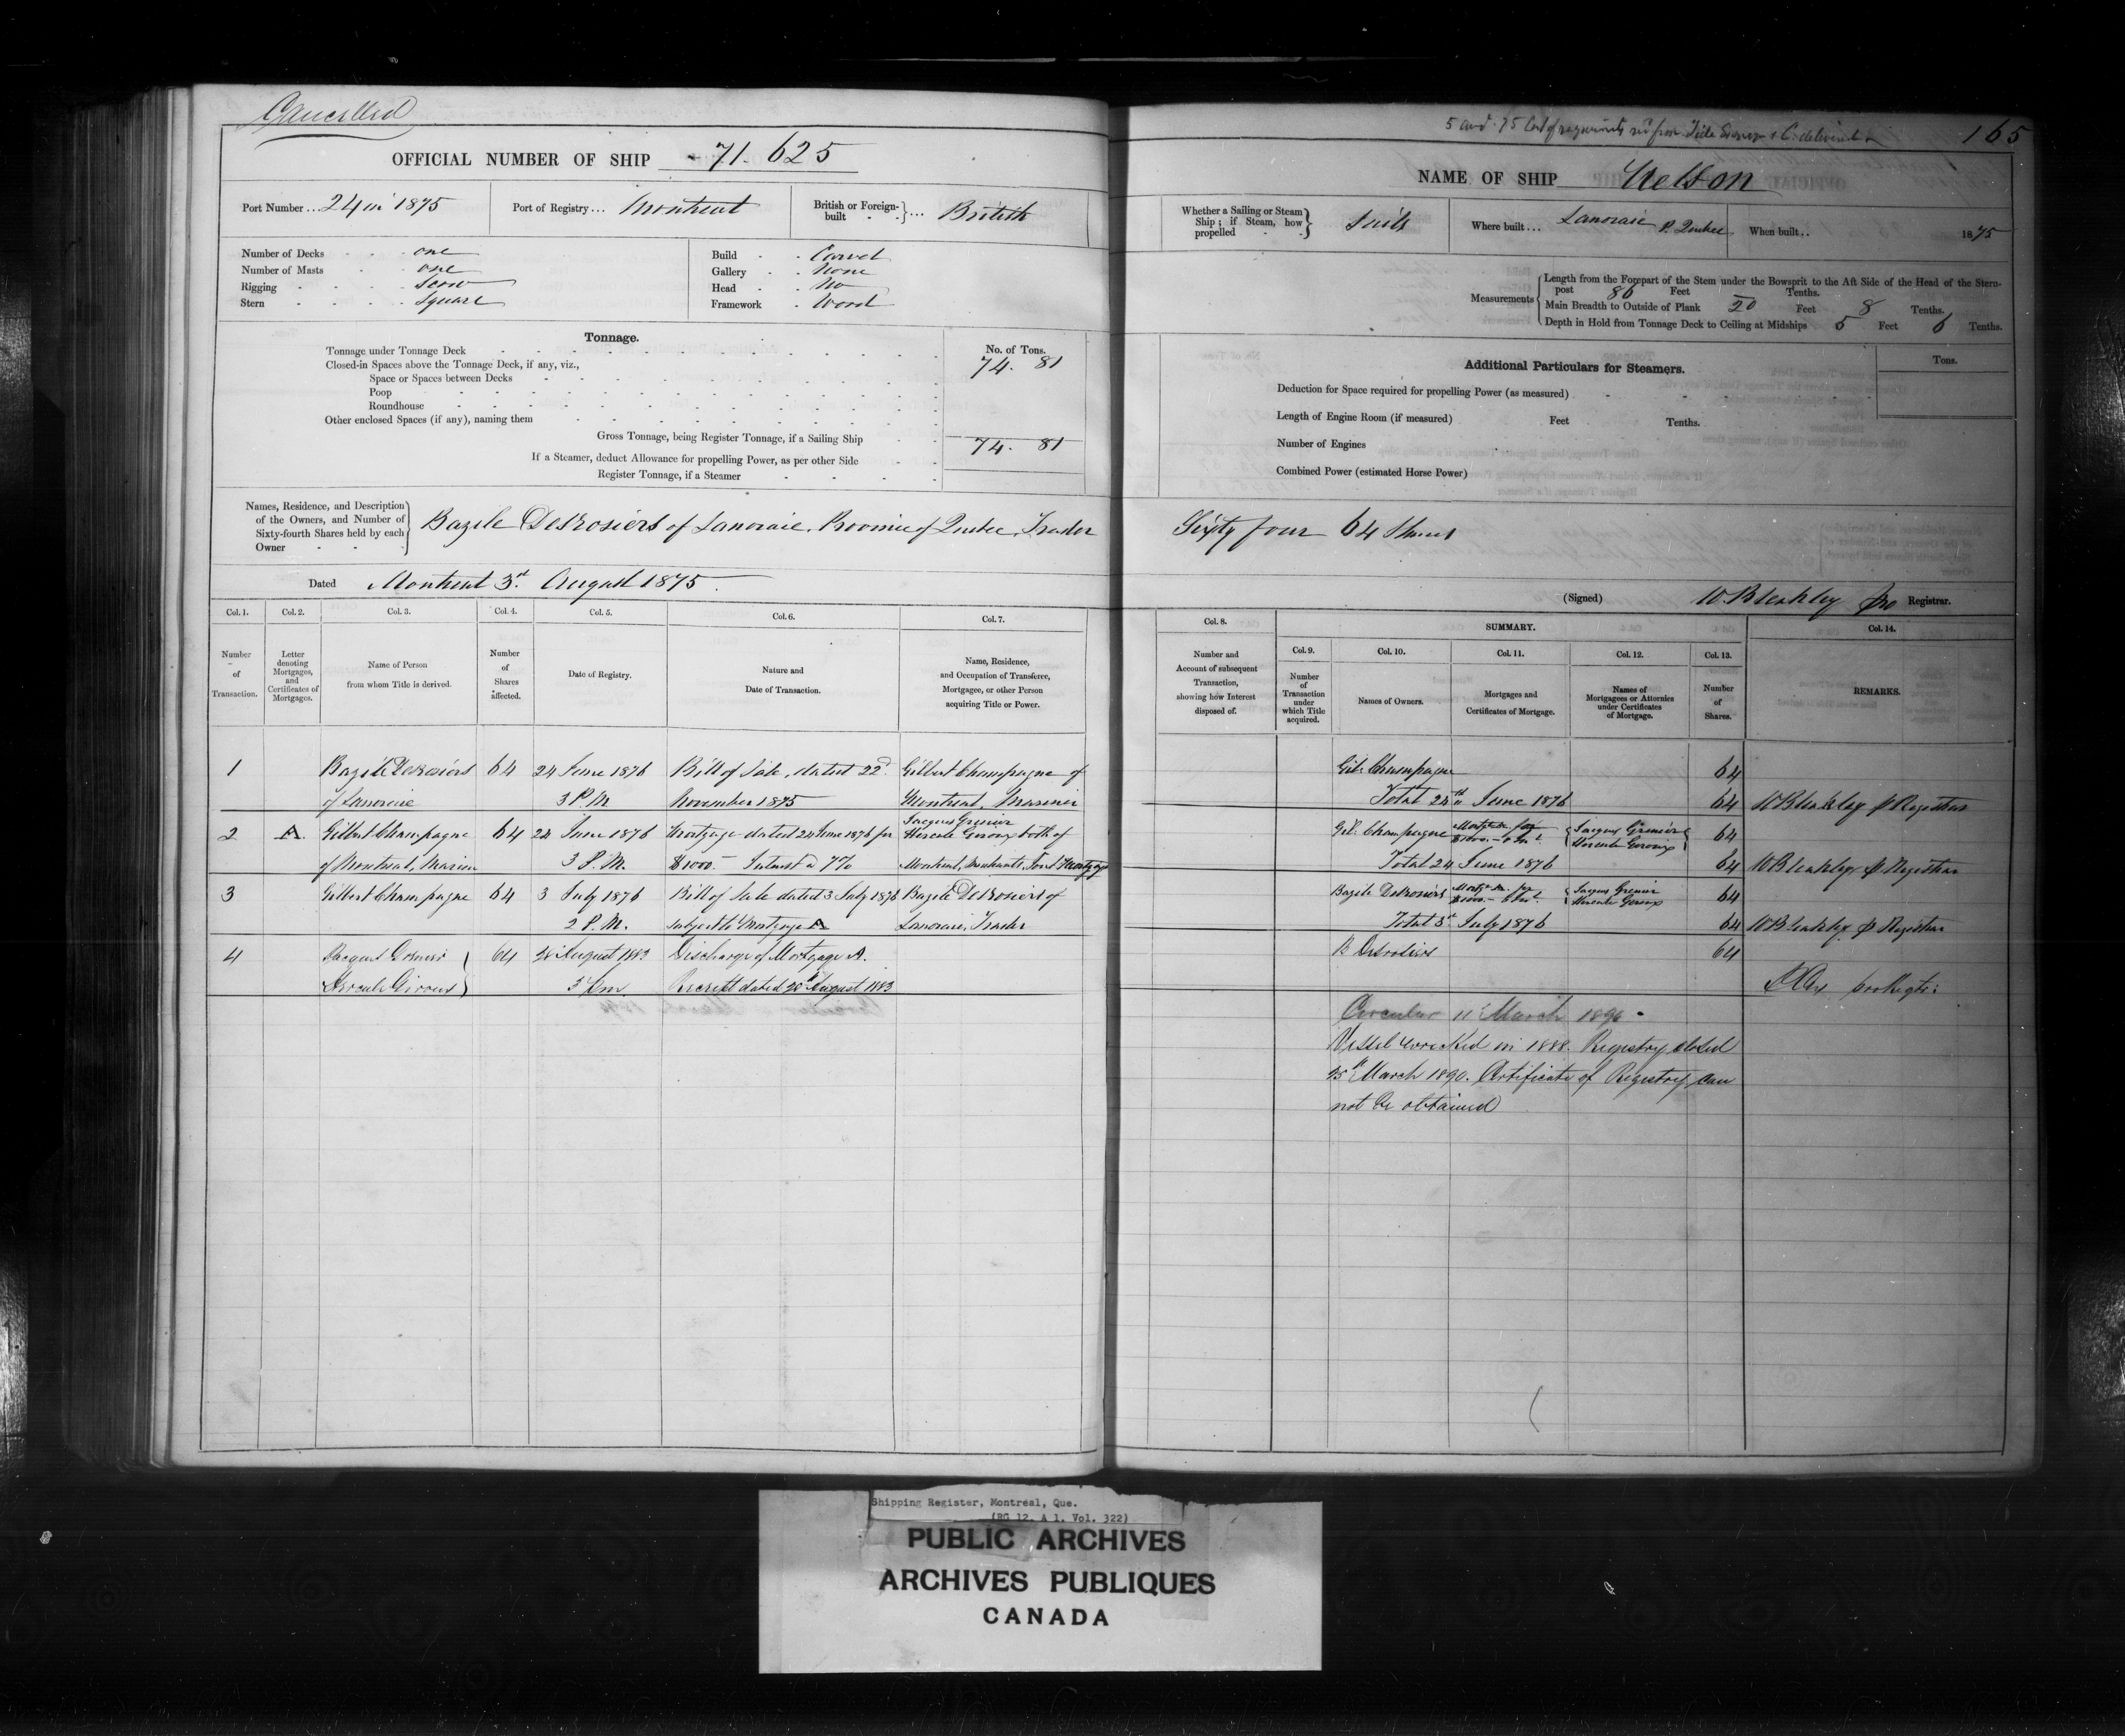 Cancelled
OFFICIAL NUMBER OF SHIP 71.625
Port Number ... 24 in 1875 Port of Registry ... Montreal British or Foreign-built ... British
Number of Decks one
Number of Masts one
Rigging Scow
Stern Square
Build Carvel
Gallery None
Head No
Framework Wood
Tonnage.
No. of Tons.
Tonnage under Tonnage Deck 74. 81
Closed-in Spaces above the Tonnage Deck, if any, viz.,
Space or Spaces between Decks
Poop
Roundhouse
Other enclosed Spaces (if any), naming them
Gross Tonnage, being Register Tonnage, if a Sailing Ship 74. 81
If a Steamer, deduct Allowance for propelling Power, as per other Side
Register Tonnage, if a Steamer
Names, Residence, and Description
of the Owners, and Number of
Sixty-fourth Shares held by each
Owner
Bazile Desrosiers of Lanoraie, Province of Quebec, Trader
Dated Montreal 3rd August 1875.
Col. 1. Col. 2. Col. 3. Col. 4. Col. 5. Col. 6. Col. 7.
Number of Transaction.
Letter denoting Mortgages, and Certificates of Mortgages.
Name of Person from whom Title is derived.
Number of Shares affected.
Date of Registry.
Nature and Date of Transaction.
Name, Residence, and Occupation of Transferee, Mortgagee, or other Person acquiring Title or Power.
1 Bazile Desrosiers 64 24 June 1876 Bill of Sale, dated 22d Gilbert Champagne of
of Lanoraie 3 P.M. November 1875 Montreal, Mariner
Jacques Grenier
2 A. Gilbert Champagne 64 24 June 1876 Mortgage dated 24 June 1876 for Hercule Geroux both of
of Montreal, Mariner 3 P.M. $1000.- Interest @ 7% Montreal, Merchants, Joint Mortgagees
3 Gilbert Champagne 64 3 July 1876 Bill of Sale dated 3 July 1876 Bazile Desrosiers of
2 P.M. subject to Mortgage A Lanoraie, Trader
4 Jacques Grenier 64 28 August 1883 Discharge of Mortgage A.
Hercule Giroux 3 pm Receipt dated 28 August 1883
5 and 75 Cert of
165
NAME OF SHIP Nelson
Whether a Sailing or Steam
Ship; if Steam, how
propelled
Sails
Where built ... Lanoraie P. Quebec When built .. 1875
Measurements
Length from the Forepart of the Stem under the Bowsprit to the Aft Side of the Head of the Stern-
post 86 Feet Tenths.
Main Breadth to Outside of Plank 20 Feet 8 Tenths.
Depth in Hold from Tonnage Deck to Ceiling at Midships 5 Feet 6 Tenths.
Additional Particulars for Steamers. Tons.
Deduction for Space required for propelling Power (as measured)
Length of Engine Room (if measured) Feet Tenths.
Number of Engines
Combined Power (estimated Horse Power)
Sixty four 64 Shares
(Signed) W. Bleakley pro Registrar.
Col. 8. SUMMARY. Col. 14.
Col. 9. Col. 10. Col. 11. Col. 12. Col. 13.
Number and Account of subsequent Transaction, showing how Interest disposed of.
Number of Transaction under which Title acquired.
Names of Owners.
Mortgages and Certificates of Mortgage.
Names of Mortgagees or Attornies under Certificates of Mortgage.
Number of Shares.
REMARKS.
Gil. Champagne 64
Total 24th June 1876 64 W Bleakley p Registrar
Gil. Champagne Mortge A. for $1000.- Jacques Grenier Hercule Geroux 64
Total 24 June 1876 64 W Bleakley p Registrar
Bazile Desrosiers Mortge A. for $1000.- Jacques Grenier Hercule Geroux 64
Total 3d July 1876 64 W Bleakley p Registrar
B Desrosiers 64
Circular 11 March 1890.
Vessel wrecked in 1888. Registry closed
25th March 1890. Certificate of Registry can
not be obtained
Shipping Register, Montreal, Que.
(RG 12, A 1, Vol. 322)
PUBLIC ARCHIVES
ARCHIVES PUBLIQUES
CANADA